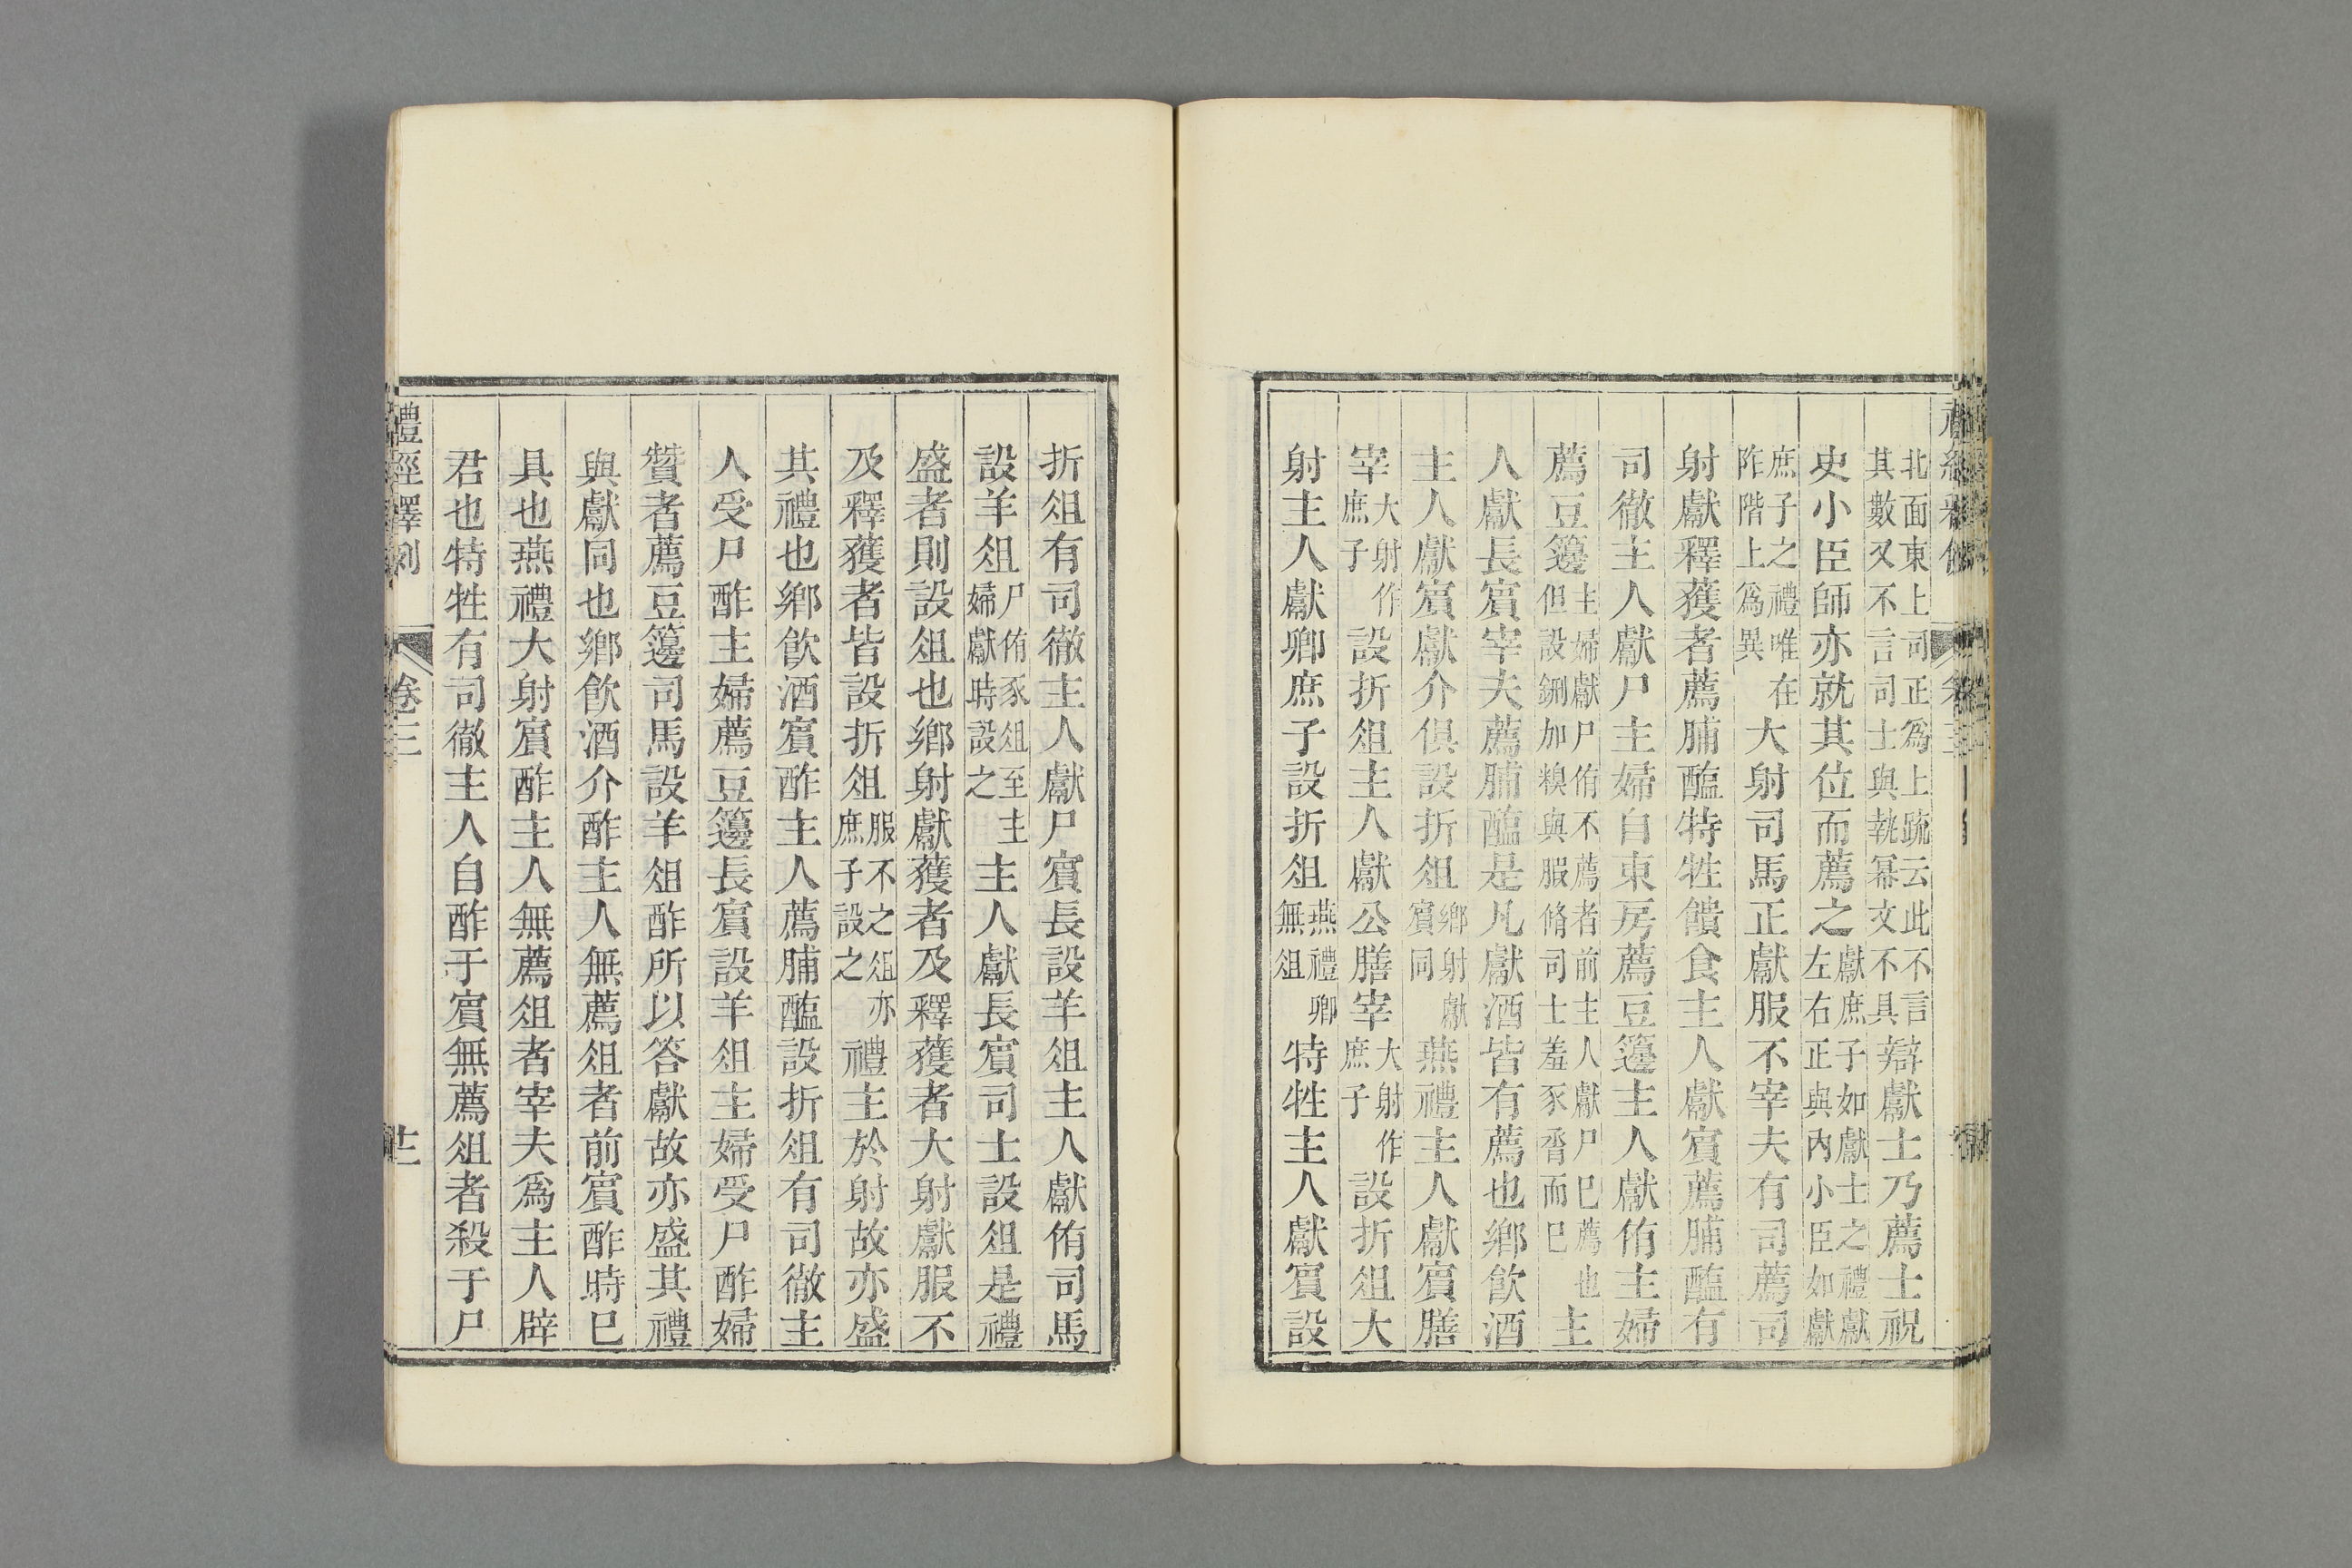 北面東上司正爲上疏云此不言其數又不言司士與執冪文不具辯獻士乃薦士祝
史小臣師亦就其位而薦之獻庶子如獻士之禮獻左右正與內小臣如獻
庶子之禮唯在阼階上爲異大射司馬正獻服不宰夫有司薦司
射獻釋獲者薦脯醢特牲饋食主人獻賓薦脯醢有
司徹主人獻尸主婦自東房薦豆籩主人獻侑主婦
薦豆籩主婦獻尸侑不薦者前主人獻尸巳薦也但設鉶加糗與服脩司士羞豕脀而巳主
人獻長賓宰夫薦脯醢是凡獻酒皆有薦也鄉飲酒
主人獻賓獻介俱設折俎鄉射獻賓同燕禮主人獻賓膳
宰大射作庶子設折俎主人獻公膳宰大射作庶子設折俎大
射主人獻卿庶子設折俎燕禮卿無俎特牲主人獻賓設
折俎有司徹主人獻尸賓長設羊俎主人獻侑司馬
設羊俎尸侑豕俎至主婦獻時設之主人獻長賓司士設俎是禮
盛者則設俎也鄉射獻獲者及釋獲者大射獻服不
及釋獲者皆設折俎服不之俎亦庶子設之禮主於射故亦盛
其禮也鄉飲酒賓酢主人薦脯醢設折俎有司徹主
人受尸酢主婦薦豆籩長賓設羊俎主婦受尸酢婦
贊者薦豆籩司馬設羊俎酢所以答獻故亦盛其禮
與獻同也鄉飲酒介酢主人無薦俎者前賓酢時巳
具也燕禮大射賓酢主人無薦俎者宰夫爲主人辟
君也特牲有司徹主人自酢于賓無薦俎者殺于尸
禮經釋例
卷三
廿二